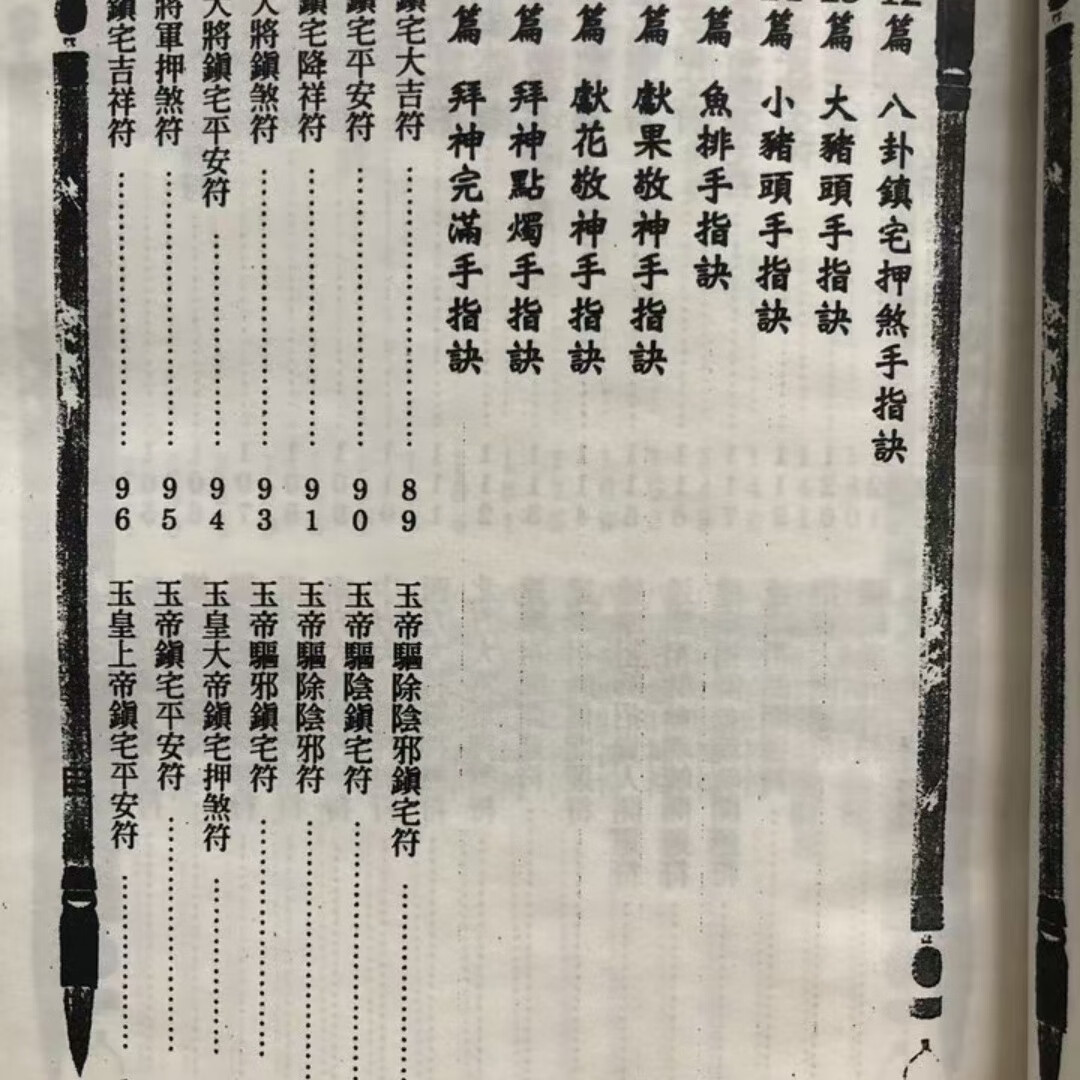 12篇 八卦鎮宅押煞手指訣
篇 大豬頭手指訣
篇 小豬頭手指訣
篇 魚排手指訣
篇 獻果敬神手指訣
篇 獻花敬神手指訣
篇 拜神點燭手指訣
篇 拜神完滿手指訣
鎮宅大吉符……………………89
鎮宅平安符……………………90
鎮宅降祥符……………………91
將鎮煞符……………………93
將鎮宅平安符………………94
將軍押煞符……………………95
鎮宅吉祥符……………………96
玉帝驅除陰邪鎮宅符…………
玉帝驅陰鎮宅符………………
玉帝驅除陰邪符………………
玉帝驅邪鎮宅符………………
玉皇大帝鎮宅押煞符…………
玉帝鎮宅平安符………………
玉皇上帝鎮宅平安符…………